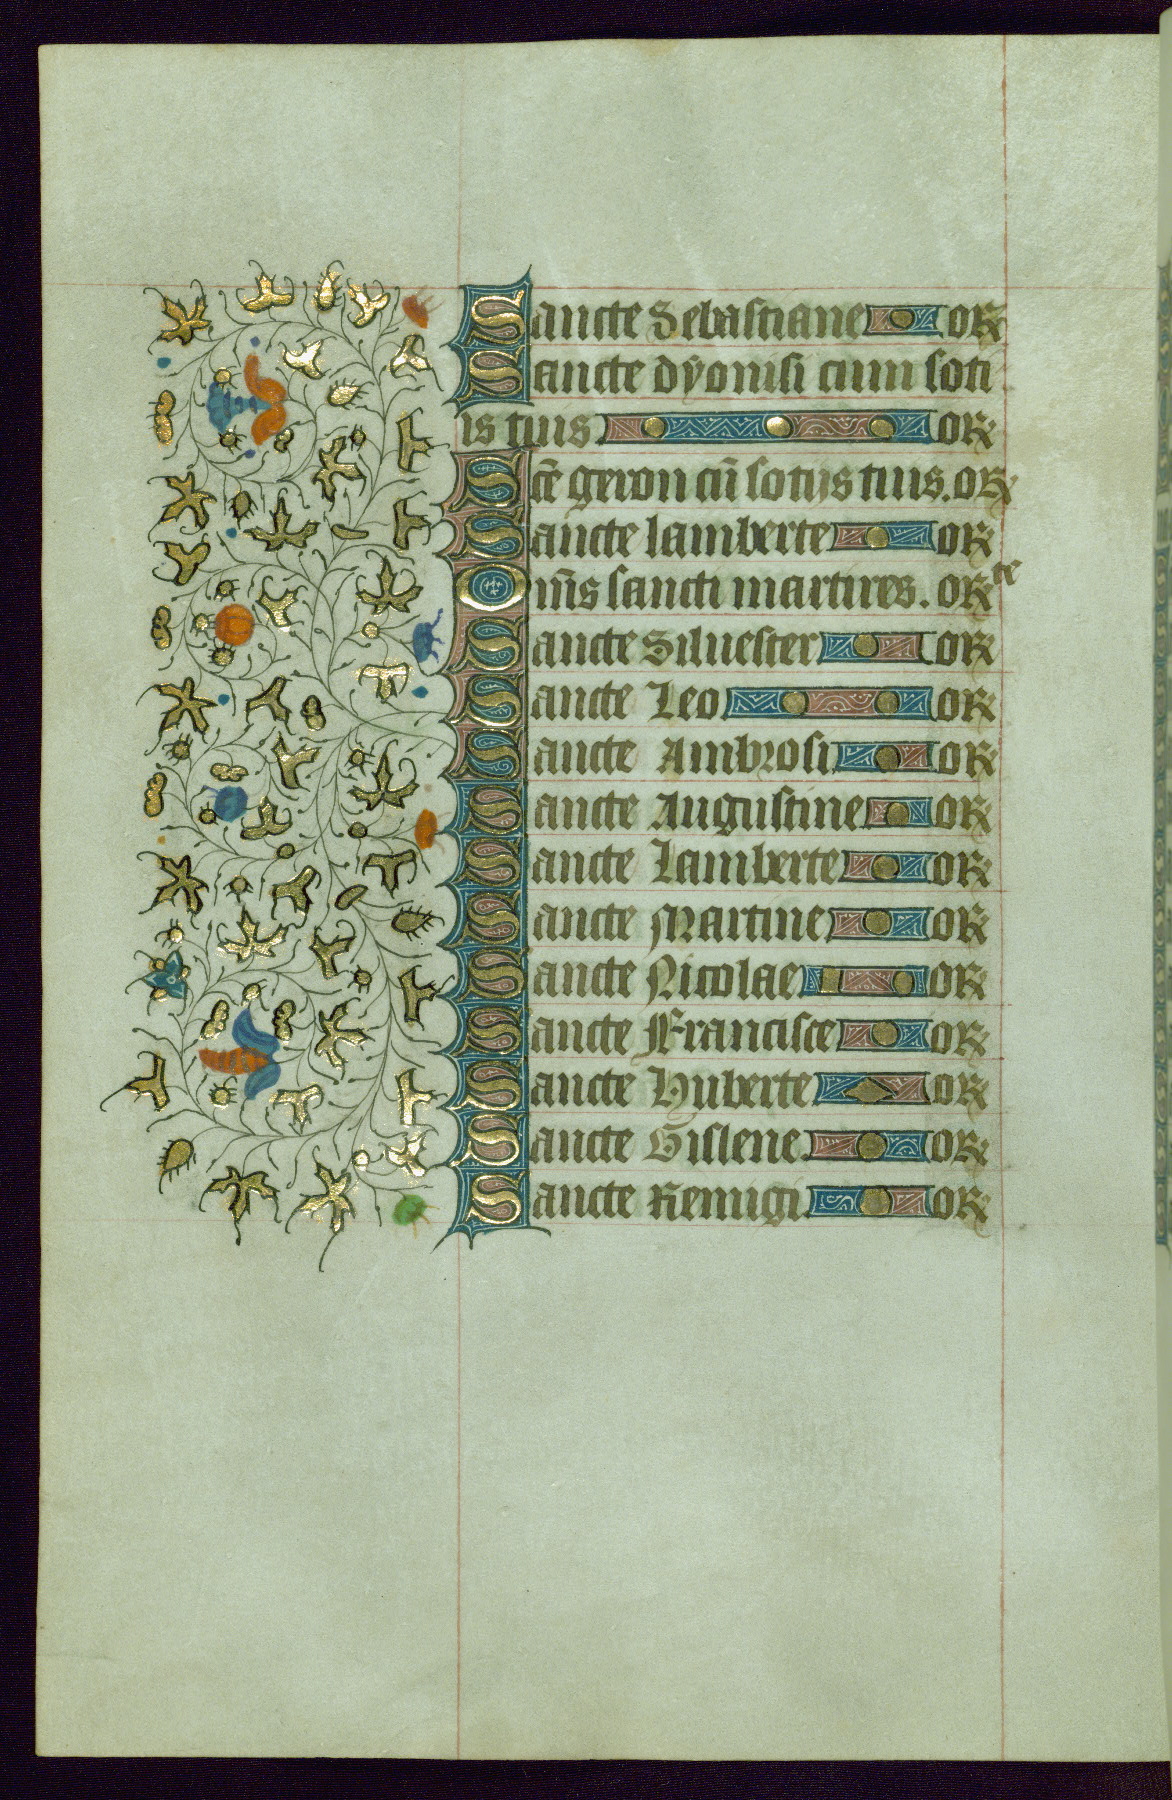 Sancte Sebastiane or
Sancte dyonisi cum soti
is tuis or
Scē geron cū sotijs tuis. or
Sancte lamberte or
Om̄s sancti martires. or te
Sancte Siluester or
Sancte Leo or
Sancte Ambrosi or
Sancte Augustine or
Sancte Lamberte or
Sancte Martine or
Sancte Nicolae or
Sancte Francisce or
Sancte Huberte or
Sancte Gislene or
Sancte Remigi or